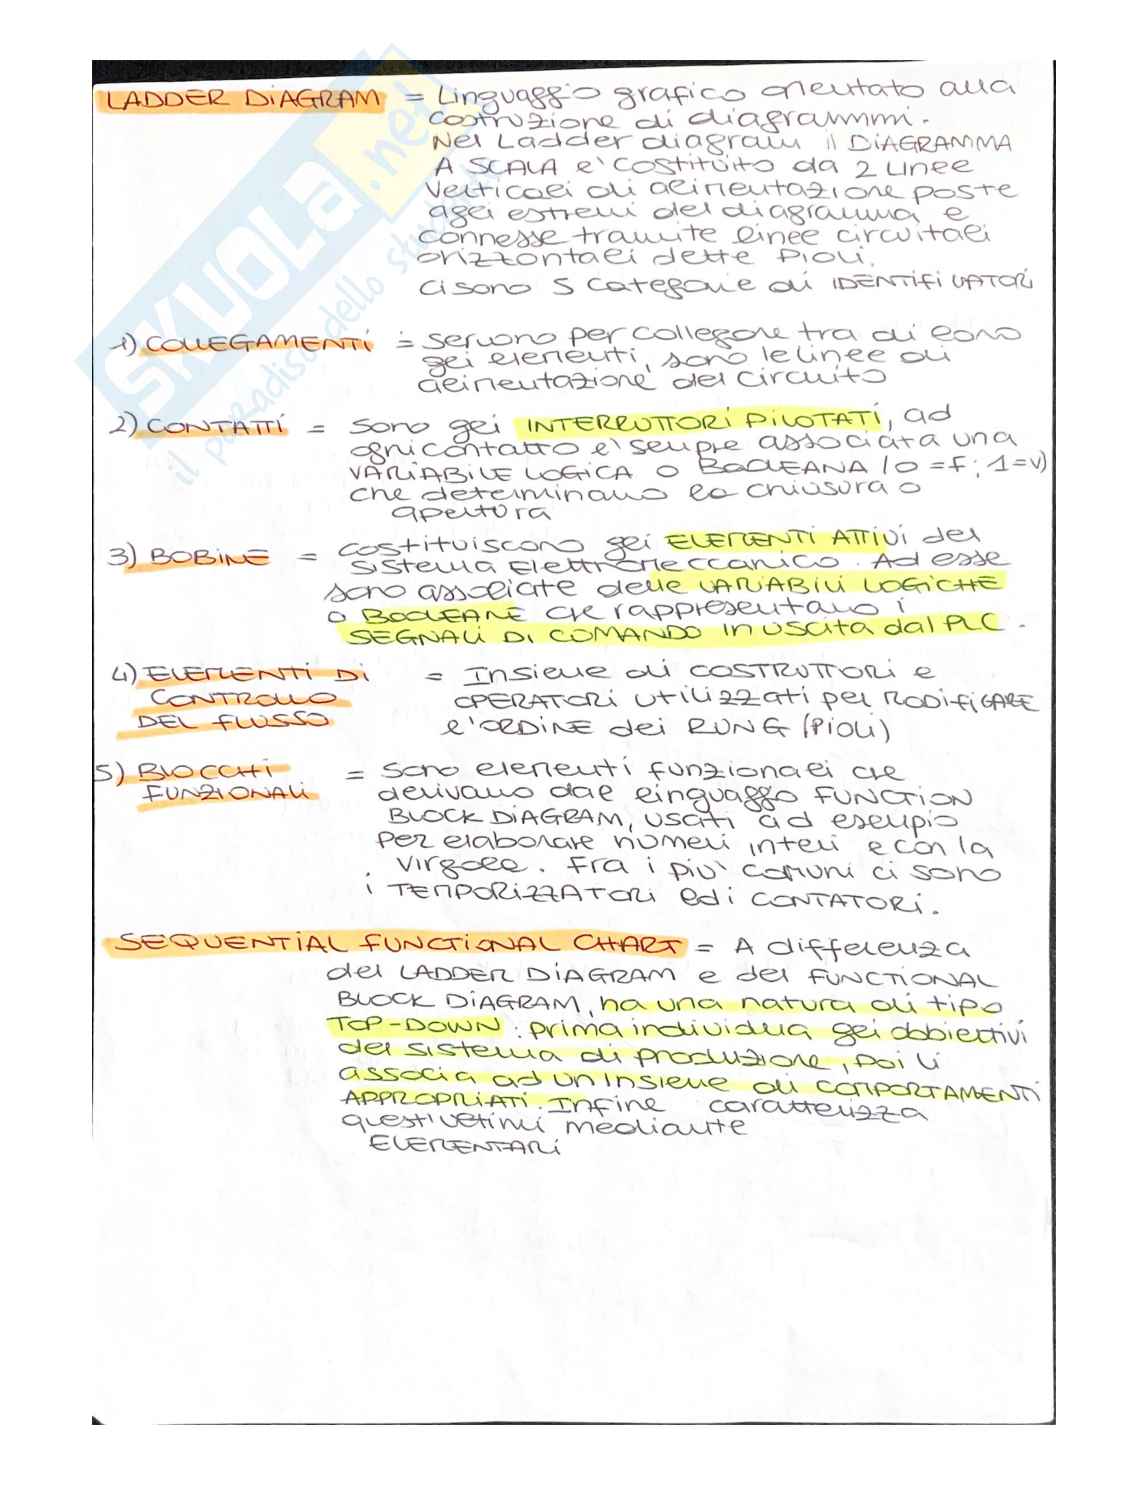 LADDER DIAGRAM = Linguaggio grafico orientato alla
costruzione di diagrammi.
Nel Ladder diagram il DIAGRAMMA
A SCALA e' COSTITUITO da 2 Linee
verticali di alimentazione poste
agli estremi del diagramma e
connesse tramite linee circuitali
orizzontali dette PIOLI.
ci sono 5 categorie di IDENTIFICATORI
1) COLLEGAMENTI = servono per collegare tra di loro
gli elementi, sono le linee di
alimentazione del circuito
2) CONTATTI = sono gli INTERRUTTORI PILOTATI, ad
ogni contatto e' sempre associata una
VARIABILE LOGICA O BOOLEANA (0=F; 1=V)
che determinano la chiusura o
apertura
3) BOBINE = costituiscono gli ELEMENTI ATTIVI del
sistema Elettromeccanico. Ad esse
sono associate delle VARIABILI LOGICHE
o BOOLEANE che rappresentano i
SEGNALI DI COMANDO in uscita dal PLC.
4) ELEMENTI DI = Insieme di COSTRUTTORI e
CONTROLLO OPERATORI utilizzati per MODIFICARE
DEL FLUSSO l'ORDINE dei RUNG (PIOLI)
5) BLOCCHI = sono elementi funzionali che
FUNZIONALI derivano dal linguaggio FUNCTION
BLOCK DIAGRAM, usati ad esempio
per elaborare numeri interi e con la
virgola. Fra i piu' comuni ci sono
i TEMPORIZZATORI ed i CONTATORI.
SEQUENTIAL FUNCTIONAL CHART = A differenza
del LADDER DIAGRAM e del FUNCTIONAL
BLOCK DIAGRAM, ha una natura di tipo
TOP-DOWN: prima individua gli obbiettivi
del sistema di produzione, poi li
associa ad un insieme di COMPORTAMENTI
APPROPRIATI. Infine caratterizza
quest'ultimi mediante
ELEMENTARI
SKUOLA.net
il paradiso dello studente